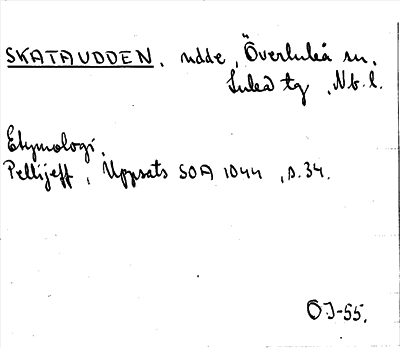 SKATAUDDEN. udde, Överluleå sn.
Luleå tg, Nb.l.
Etymologi.
Pellijeff, Uppsats SOA 1044, s.34.
ÖJ-55.